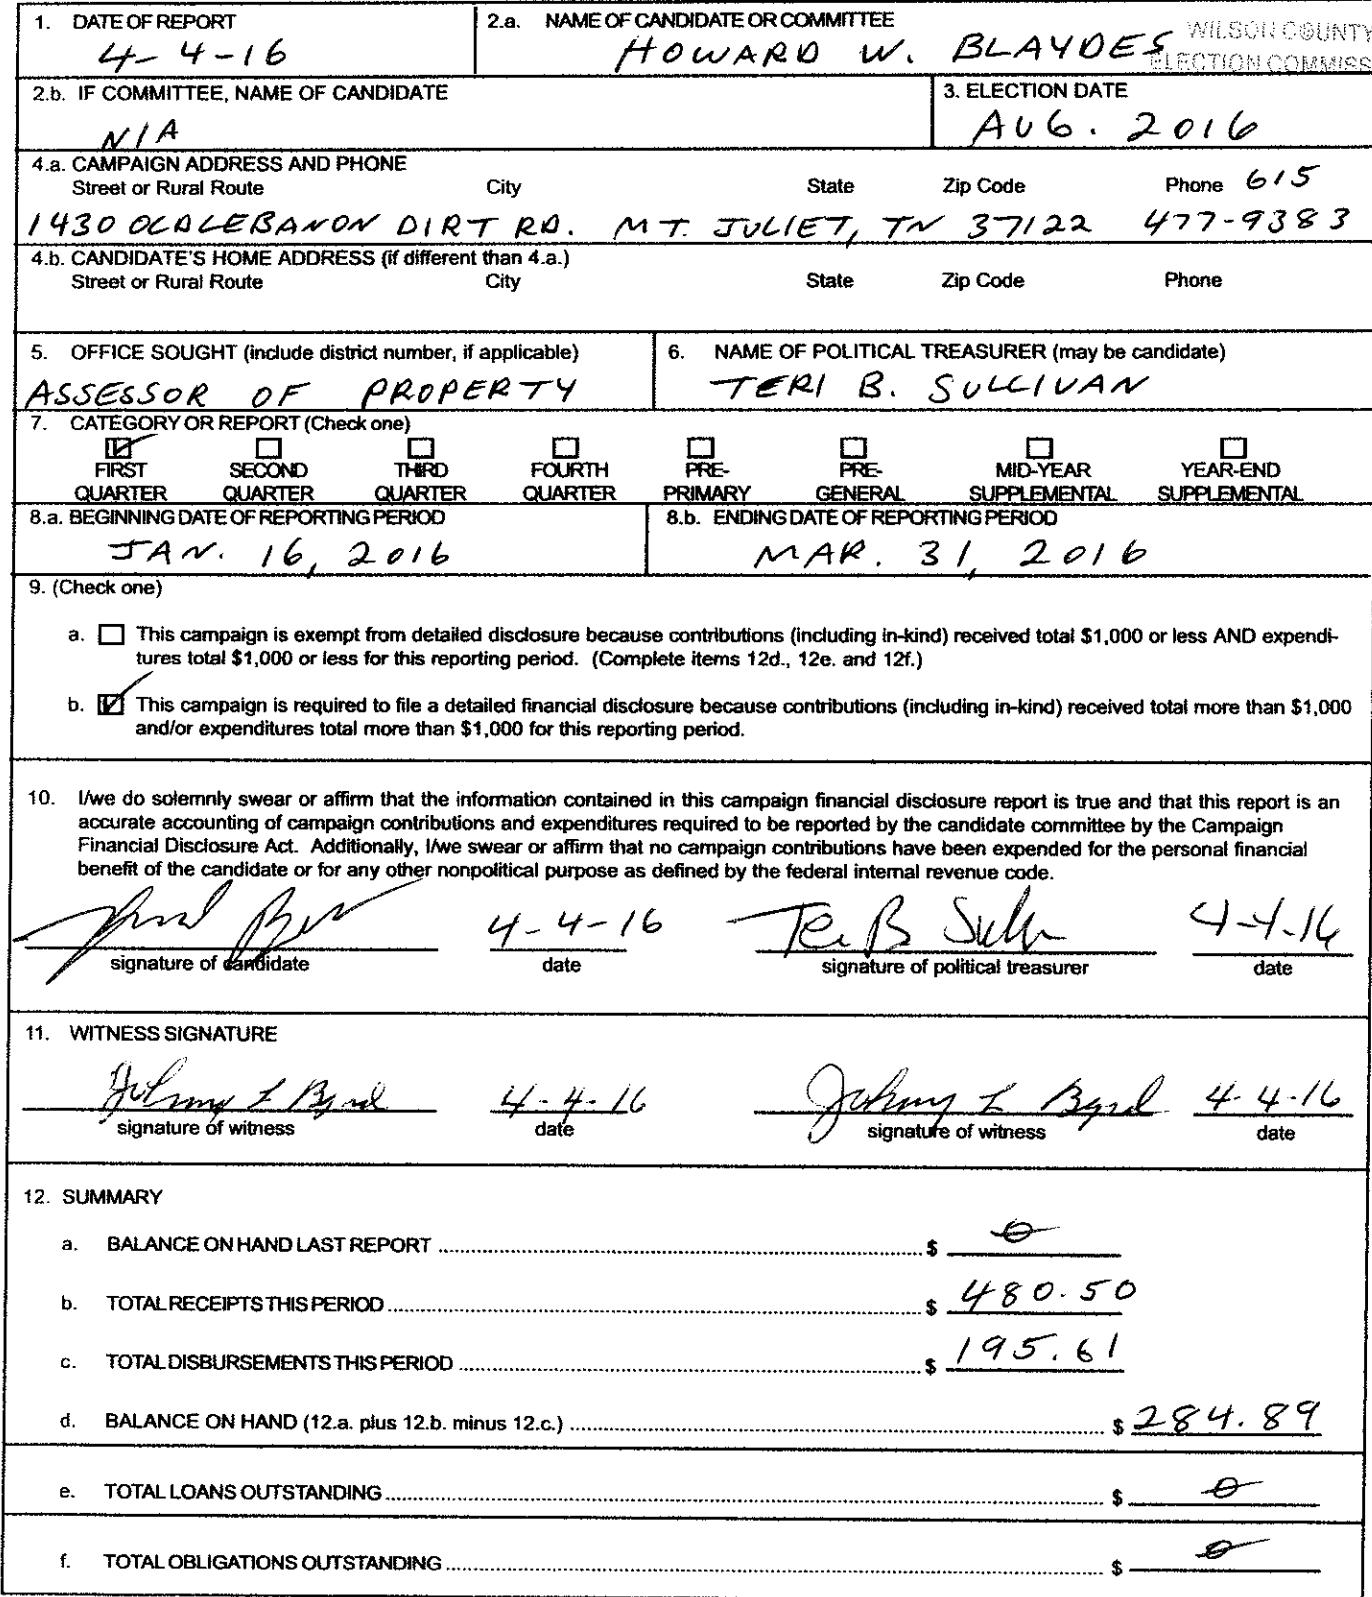 1. DATE OF REPORT
4-4-16
2.a. NAME OF CANDIDATE OR COMMITTEE
HOWARD W. BLAYDES
WILSON COUNTY
ELECTION COMMISS
2.b. IF COMMITTEE, NAME OF CANDIDATE
N/A
3. ELECTION DATE
AUG. 2016
4.a. CAMPAIGN ADDRESS AND PHONE
Street or Rural Route City State Zip Code Phone 615
1430 OLD LEBANON DIRT RD. MT. JULIET, TN 37122 477-9383
4.b. CANDIDATE'S HOME ADDRESS (if different than 4.a.)
Street or Rural Route City State Zip Code Phone
5. OFFICE SOUGHT (include district number, if applicable)
ASSESSOR OF PROPERTY
6. NAME OF POLITICAL TREASURER (may be candidate)
TERI B. SULLIVAN
7. CATEGORY OR REPORT (Check one)
FIRST SECOND THIRD FOURTH PRE- PRE- MID-YEAR YEAR-END
QUARTER QUARTER QUARTER QUARTER PRIMARY GENERAL SUPPLEMENTAL SUPPLEMENTAL
8.a. BEGINNING DATE OF REPORTING PERIOD
JAN. 16, 2016
8.b. ENDING DATE OF REPORTING PERIOD
MAR. 31, 2016
9. (Check one)
a. This campaign is exempt from detailed disclosure because contributions (including in-kind) received total $1,000 or less AND expendi-
tures total $1,000 or less for this reporting period. (Complete items 12d., 12e. and 12f.)
b. This campaign is required to file a detailed financial disclosure because contributions (including in-kind) received total more than $1,000
and/or expenditures total more than $1,000 for this reporting period.
10. I/we do solemnly swear or affirm that the information contained in this campaign financial disclosure report is true and that this report is an
accurate accounting of campaign contributions and expenditures required to be reported by the candidate committee by the Campaign
Financial Disclosure Act. Additionally, I/we swear or affirm that no campaign contributions have been expended for the personal financial
benefit of the candidate or for any other nonpolitical purpose as defined by the federal internal revenue code.
4-4-16 4-4-16
signature of candidate date signature of political treasurer date
11. WITNESS SIGNATURE
Johnny L Byrd 4-4-16 Johnny L Byrd 4-4-16
signature of witness date signature of witness date
12. SUMMARY
a. BALANCE ON HAND LAST REPORT $ 0
b. TOTAL RECEIPTS THIS PERIOD $ 480.50
c. TOTAL DISBURSEMENTS THIS PERIOD $ 195.61
d. BALANCE ON HAND (12.a. plus 12.b. minus 12.c.) $ 284.89
e. TOTAL LOANS OUTSTANDING $ 0
f. TOTAL OBLIGATIONS OUTSTANDING $ 0